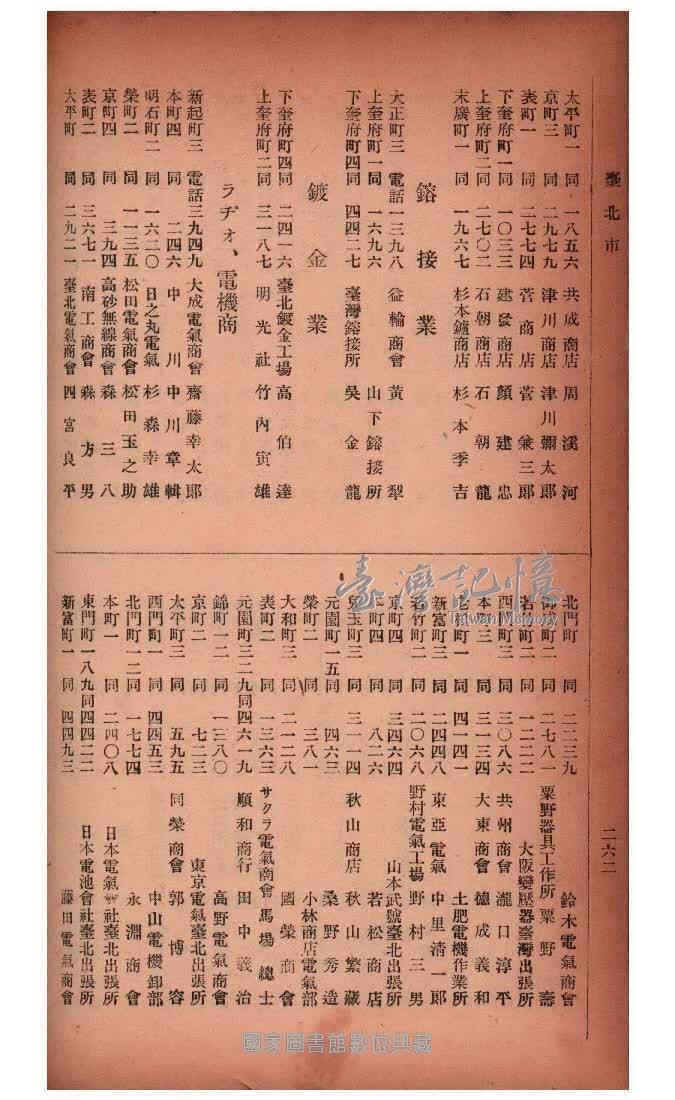 臺北市
二六二
太平町一 同 一八五六 共成商店 周溪河
京町三 同 二九七九 津川商店 津川彌太郎
表町一 同 二七七四 菅商店 菅兼三郎
下奎府町一同 一〇三三 建發商店 顏建忠
上奎府町一同 二七〇二 石朝商店 石朝龍
末廣町一 同 一九六七 杉本鑪商店 杉本季吉
鎔接業
大正町三 電話一三九八 益輪商會 黃犁
上奎府町一同 一六九六 山下鎔接所
下奎府町四同 四四二七 臺灣鎔接所 吳金龍
鍍金業
下奎府町四同 二四一六 臺北鍍金工場 高伯達
上奎府町二同 三一八七 明光社 竹內寅雄
ラヂオ、電機商
新起町三 電話三九四九 大成電氣商會 齋藤幸太郎
本町四 同 二四六 中川 中川章輯
明石町二 同 一六二〇 日之丸電氣 杉森幸雄
榮町二 同 一一三五 松田電氣商會 松田玉之助
京町四 同 三九四 高砂無線商會 森三八
表町二 同 三六七一 南工商會 森方男
太平町 同 二九二一 臺北電氣商會 四宮良平
北門町 同 二二三九 鈴木電氣商會
御成町二 同 二七八一 粟野器具工作所 粟野壽
若竹町二 同 一二二二 大阪變壓器臺灣出張所
西門町三 同 三〇八六 共州商會 瀧口淳平
本町三 同 三一三四 大東商會 德成義和
老松町一 同 四一四一 土肥電機作業所
新富町三 同 二四四八 東亞電氣 中里清一郎
若竹町二 同 二〇六八 野村電氣工場 野村三男
京町四 同 三四六四 山本武號臺北出張所
本町四 同 八二六 若松商店
兒玉町三 同 三一一四 秋山商店 秋山繁藏
元園町一五同 四六三 桑野秀造
榮町二 同 三八一 小林商店電氣部
大和町三 同 二一二八 國榮商會
表町二 同 一三六三 サクラ電氣商會 馬場總士
元園町三二九同 四六一九 順和商行 田中義治
錦町一二 同 一三八〇 高野電氣商會
京町二 同 七二三 東京電氣臺北出張所
太平町三 同 五九五 同榮商會 郭博容
西門町一 同 四四五三 中山電機卸部
北門町一二同 一七七四 永淵商會
本町一 同 二四〇八 日本電氣會社臺北出張所
東門町一八九同四四二二 日本電池會社臺北出張所
新富町一 同 四四九三 藤田電氣商會
臺灣記憶
Taiwan Memory
國家圖書館數位典藏